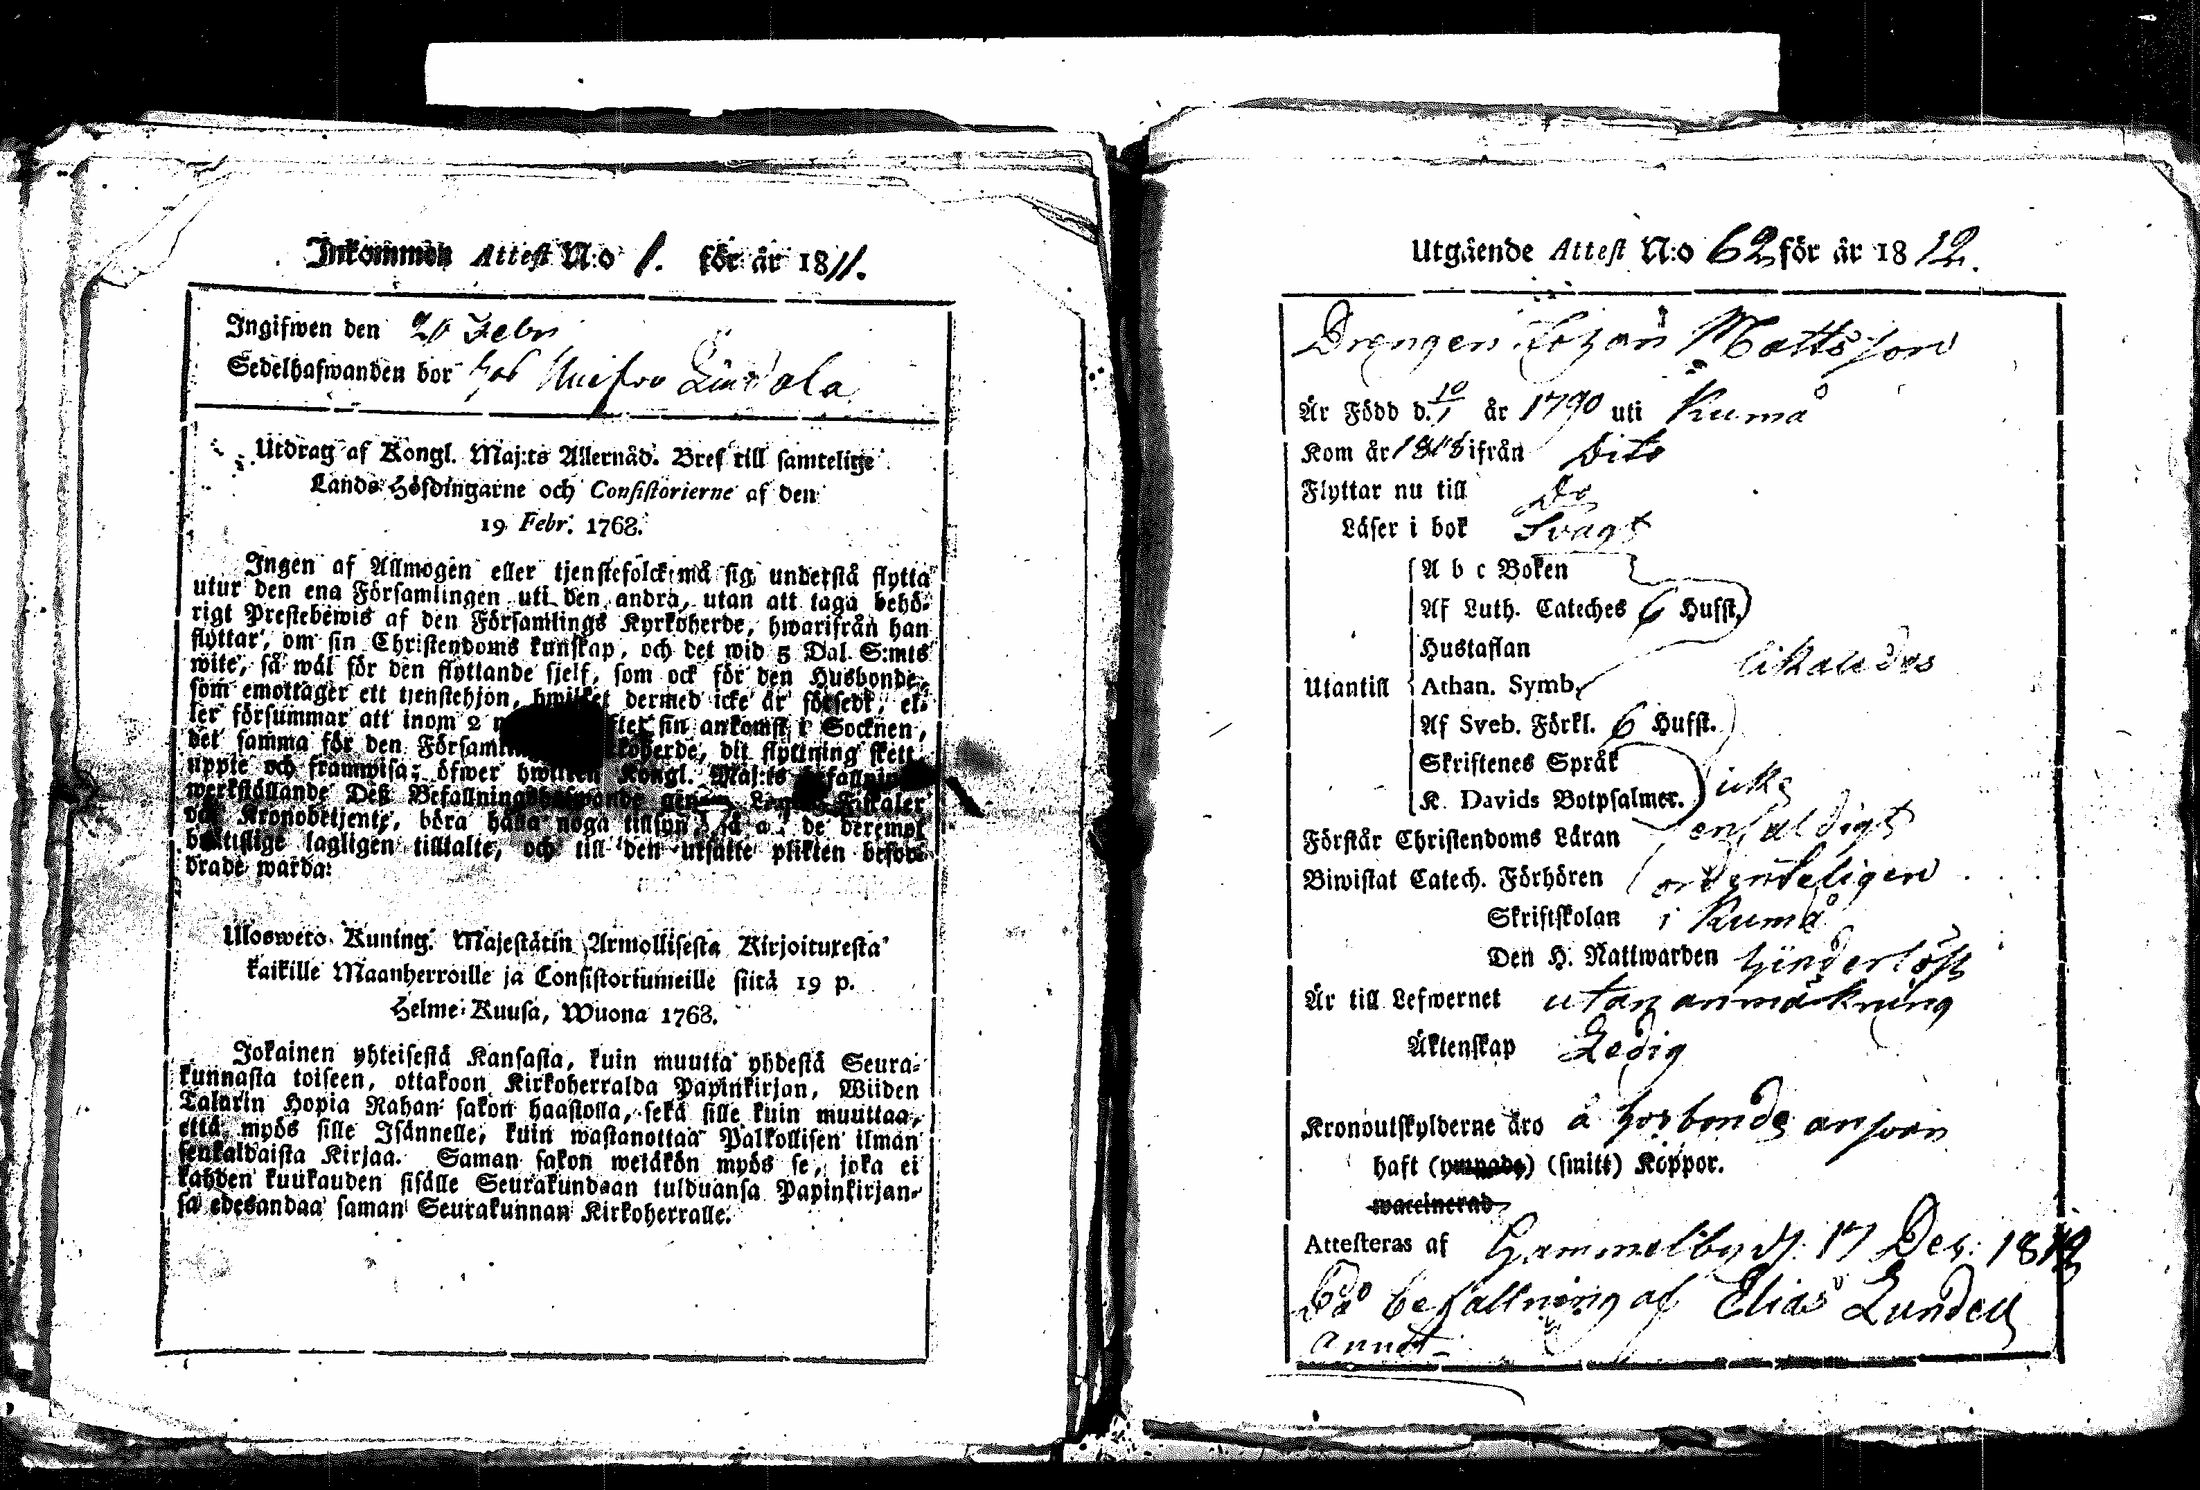 Inkommen Attest N:o 1. för år 1811.
Ingifwen den 20 Febr
Sedelhafwanden bor hos
Utdrag af Kongl. Maj:ts Allernåd. Bref till samtelige
Lands-Höfdingarne och Consistorierne af den
19 Febr. 1763.
Ingen af Allmogen eller tjenstefolck må sig understå flytta
utur den ena Församlingen uti den andra, utan att taga behö-
rigt Prestebewis af den Församlings Kyrkoherde, hwarifrån han
flyttar, om sin Christendoms kunskap, och det wid 5 Dal. S:mts
wite, så wäl för den flyttande sjelf, som ock för den Husbonde,
som emottager ett tjenstehjon, hwilket dermed icke är försedt, el-
ler försummar att inom 2 efter sin ankomst i Socknen,
det samma för den koherde, dit flyttning skett,
uppte och framwisa; öfwer hwilken Kongl. Maj:ts
werkställande Deß genom Fiskaler
och Kronobetjente, böra hålla noga tillsyn, så de deremot
lagligen tilltalte, och till den utsatte plikten beford-
rade warda:
Ulosweto Kuning. Majestätin Armollisesta Kirjoituxesta
kaikille Maanherroille ja Consistoriumeille siitä 19 p.
Helme-Kuusa, Wuona 1763.
Jokainen yhteisestä Kansasta, kuin muutta yhdestä Seura-
kunnasta toiseen, ottakoon Kirkoherralda Papinkirjan, Wiiden
Talarin Hopia Rahan sakon haastolla, sekä sille kuin muuttaa,
että myös sille Isännelle, kuin wastanottaa Palkollisen ilman
senkaldaista Kirjaa. Saman sakon wetäkön myös se, joka ei
kahden kuukauden sisälle Seurakundaan tulduansa Papinkirjan-
sa edesandaa saman Seurakunnan Kirkoherralle.
Utgående Attest N:o 62 för år 1812.
Drengen Johan Mattsson
Är Född d. 10/1 år 1790 uti Kumå
Kom år ifrån Dito
Flyttar nu till Do
Läser i bok Svagt
A b c Boken
Af Luth. Cateches 6 Hufst.
Hustaflan
likaledes
Utantill Athan. Symb.
Af Sveb. Förkl. 6 Hufst.
Skriftenes Språk
K. Davids Botpsalmer. icke
Förstår Christendoms Läran enfaldigt
Biwistat Catech. Förhören ordenteligen
Skriftskolan i Kumå
Den H. Nattwarden hinderlöst
Är till Lefwernet utan anmärkning
Äktenskap Ledig
Kronoutskylderne äro å husbonde answar
haft (ympade) (smitt) Koppor.
waccinerad
Attesteras af Gammelby d. 17 Dec. 1812
På befallning af Elias Lundell